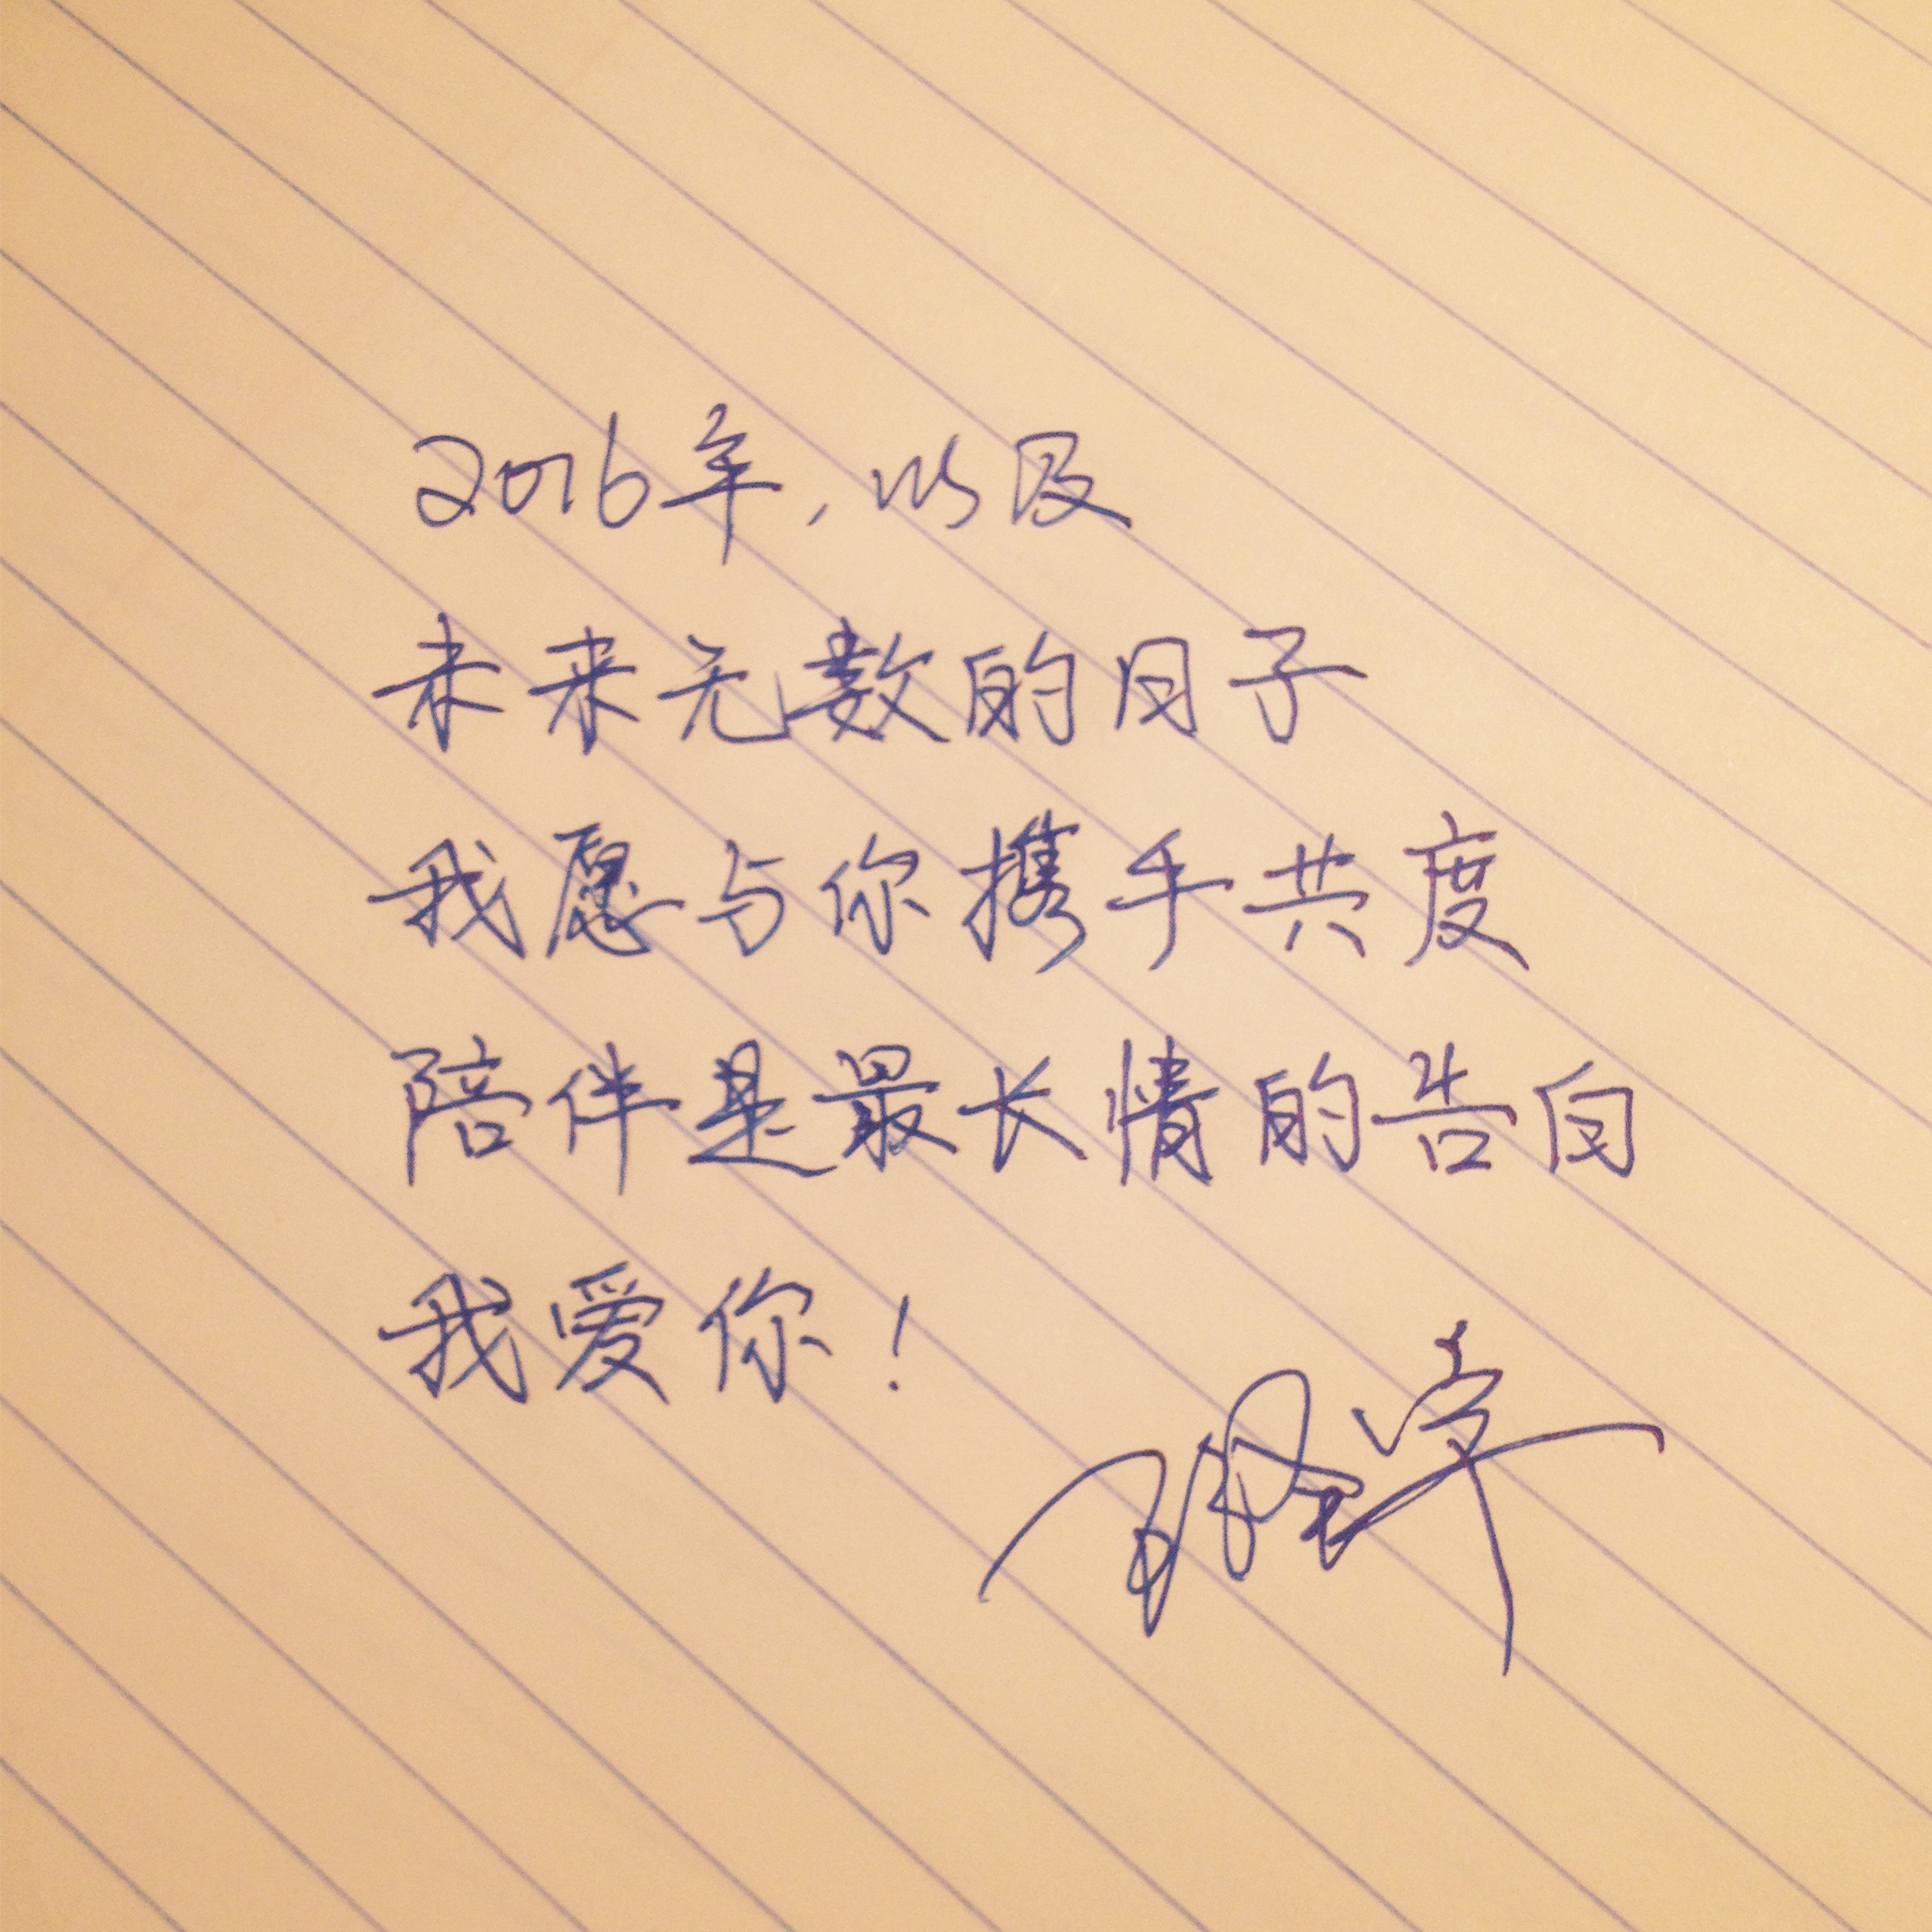 2016年，以及
未来无数的日子
我愿与你携手共度
陪伴是最长情的告白
我爱你！